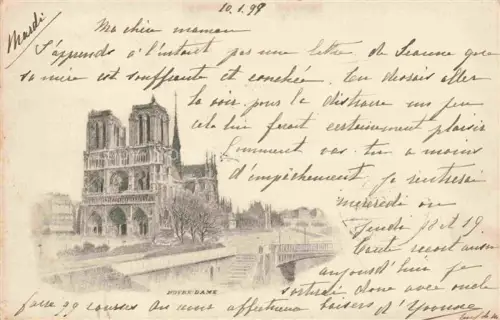 Mardi
10.1.99
Ma chère maman
J'apprends à l'instant par une lettre de Jeanne que
sa mère est souffrante et couchée. Tu devrais aller
la voir pour la distraire un peu
cela lui ferait certainement plaisir
Comment vas-tu à moins
d'empêchement je rentrerai
mercredi ou
Jeudi 18 et 19.
Tante reçoit aussi
aujourd'hui je
sortirai donc avec oncle
NOTRE-DAME
faire qq courses affectueux baisers d'Yvonne